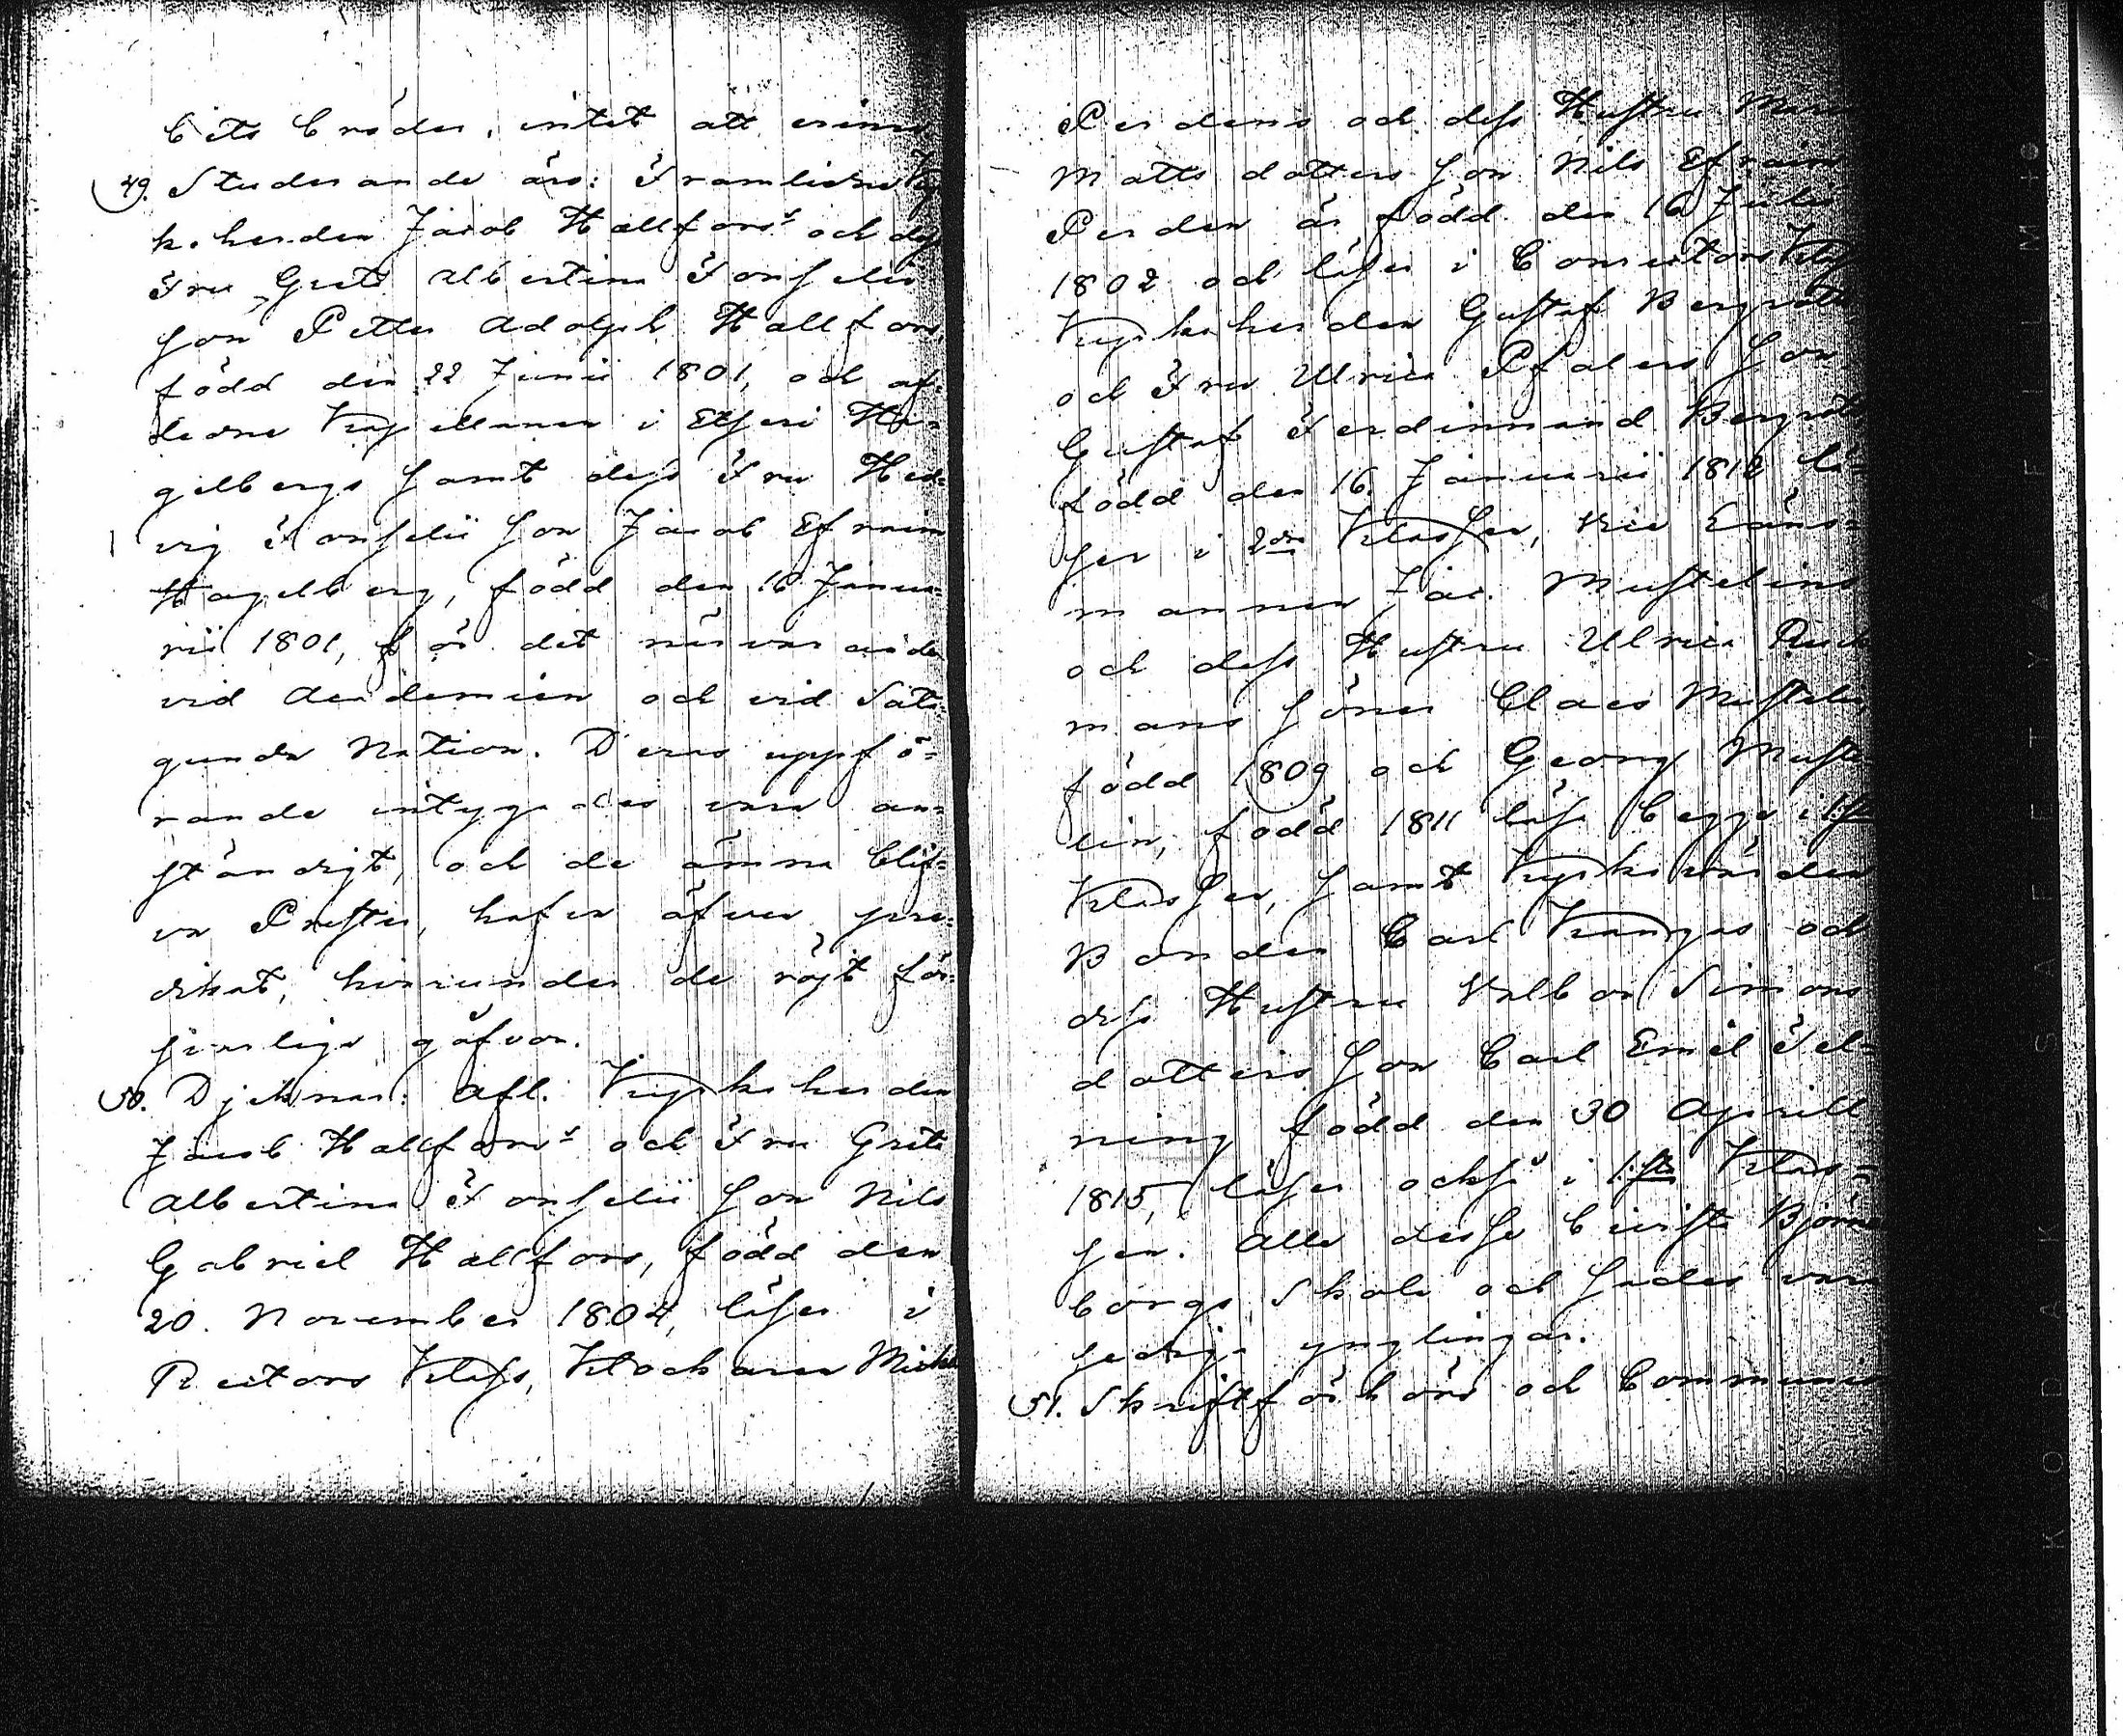 bets bröder, intet att erinra
49. Studerande äro: Framlidne Kyr
koherden Jacob Hallfors's och dess
Fru Greta Albertina Fonselii
son Petter Adolph Hallfors,
född den 22 Junii 1801, och af-
lidne Kapellanen i Etseri Ha-
gelbergs samt dess Fru Hed-
vig Fonselii son Jacob Efraim
Hagelberg, född den 16 Janua-
rii 1801, för det närvarande
vid Academien och vid Sata-
gunda Nation. Deras uppfö-
rande intygades vara an-
ständigt, och de ämna blif-
va Prester, hafva äfven pre-
dikat, hvarunder de röjt för-
farliga gåfvor.
50. Djeknar: Afl. Kyrkoherden
Jacob Hallfors's och Fru Greta
Albertina Fonselii son Nils
Gabriel Hallfors, född den
20. November 1804, läser i
Rectors Klass, Klockaren Mich
Perdens och dess Hustru Maria
Matts dotters son Nils Efraim
Perden är född den 16 Julii
1802 och läser i Conrectors Klass
Kyrkoherden Gustaf Bergroth
och Fru Ulrica Pfalers son
Gustaf Ferdinand Bergroth
född den 16. Januarii 1812 lä-
ser i 2dra Klassen, Vice Läns-
mannen Jac. Mustelins
och dess Hustru Ulrica
mans söner Claes Mustelin
född 1809 och Georg Muste-
lin, född 1811 läsa begge i 1sta
Klassen, samt Kyrkovärden
Bonden Carl Kangas och
dess Hustru Valbor Simons
dotters son Carl Emil Fel-
ning född den 30 Aprill
1815, läser också i 1sta Klas-
sen. Alla desse bevista Björne
borgs Skola och sades vara
sediga ynglingar.
51. Skriftförhörs och Communion